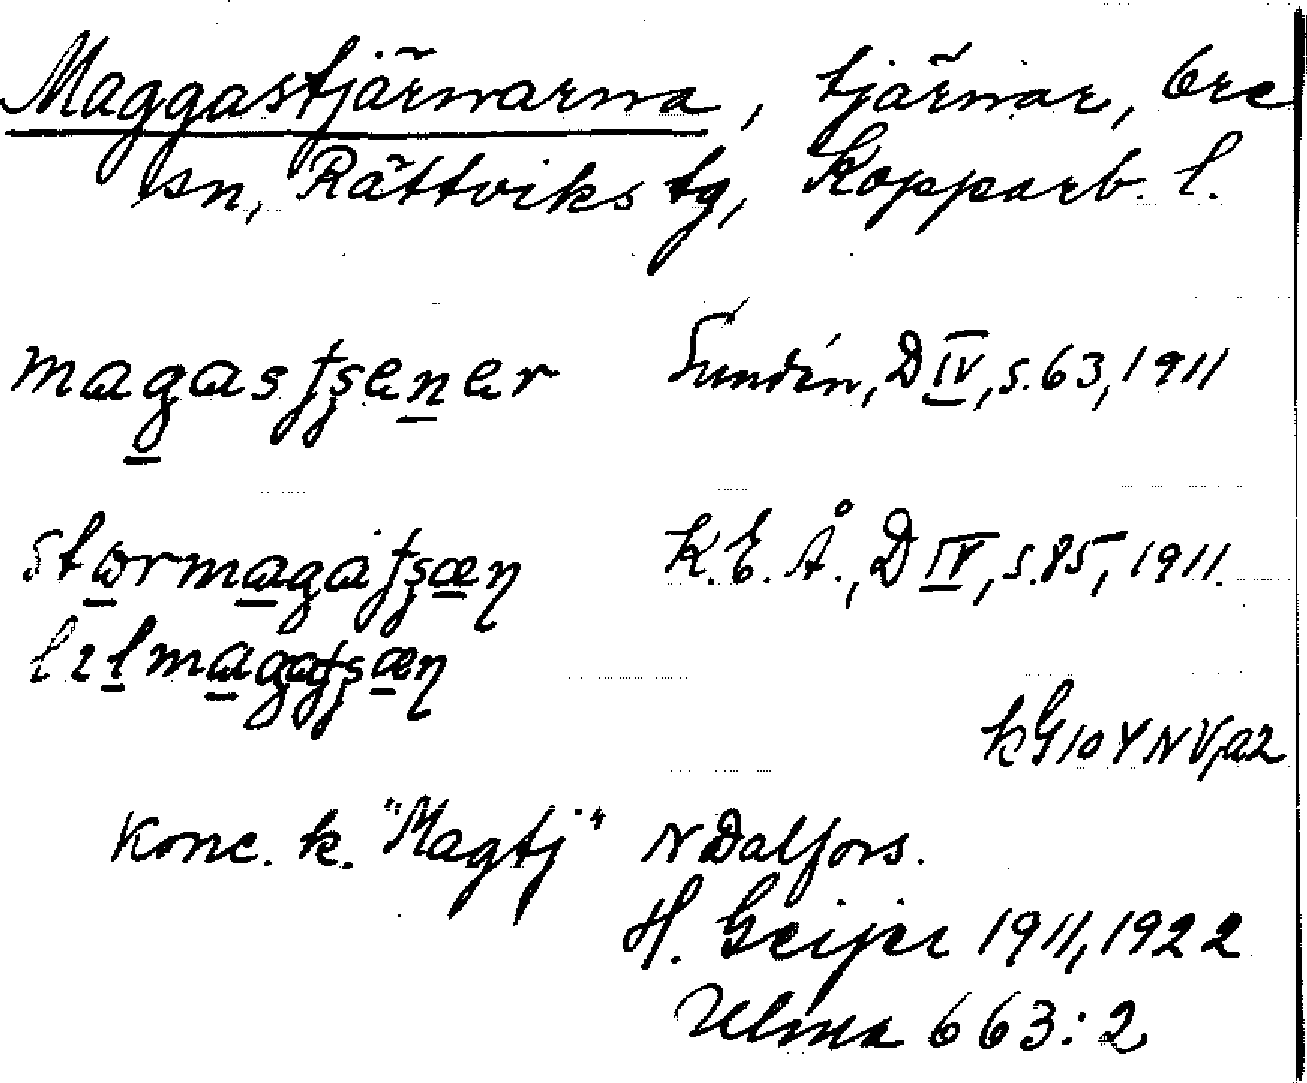 Maggastjärnarna, tjärnar, Ore
sn, Rättviks tg, Kopparb. l.
magastʃenar Sundén, D IV, s. 63, 1911
stormagatʃæn K.E. Å., D IV, s. 85, 1911.
lilmagatʃæn
kG10YNV, a2
Konc. k. "Magtj" N Dalfors.
H. Geijer 1911, 1922
Ulma 663:2